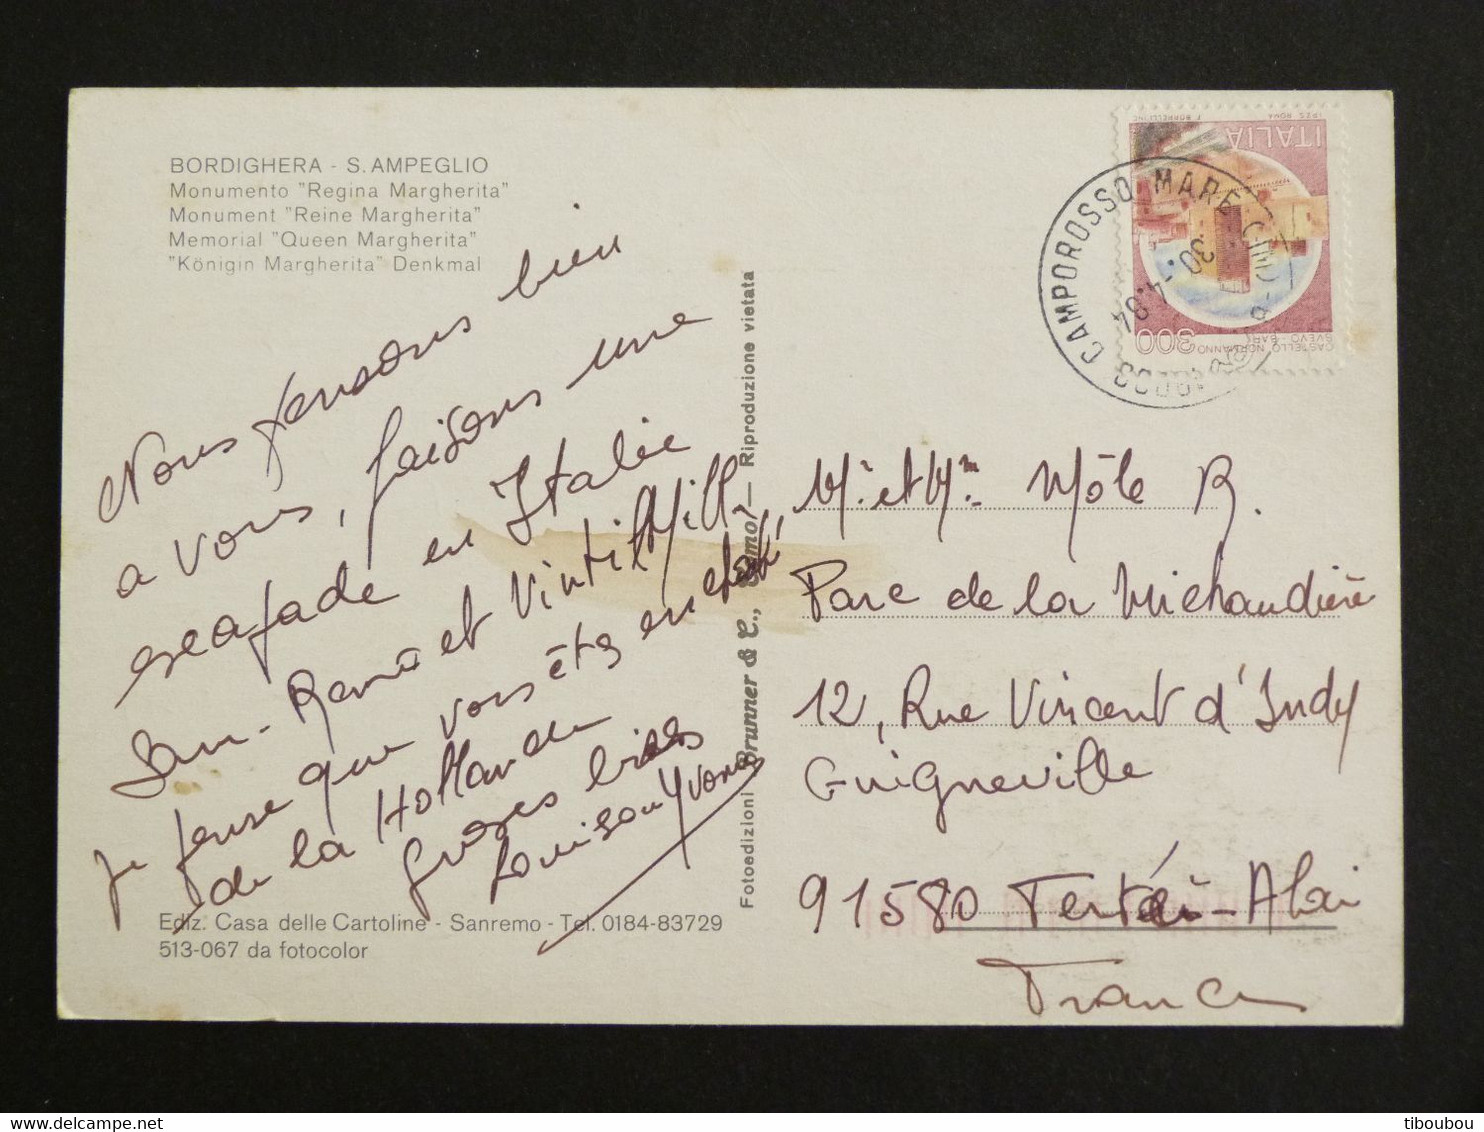 BORDIGHERA - S. AMPEGLIO
Monumento "Regina Margherita"
Monument "Reine Margherita"
Memorial "Queen Margherita"
"Königin Margherita" Denkmal
Nous pensons bien
a vous, faisons une
escapade en Italie
San-Remo et VintilMill
je pense que vous êtes enchanté
de la Hollande
Grosses bises
Louison Yvone
Ediz. Casa delle Cartoline - Sanremo - Tel. 0184-83729
513-067 da fotocolor
Fotoedizioni Brunner & C., Como — Riproduzione vietata
ITALIA
I.P.Z.S. ROMA
300
CASTELLO NORMANNO
SVEVO - BARI
CAMPOROSSO MARE
30.-4.84
Mr et Mm Môle R.
Parc de la Michaudière
12, Rue Vincent d'Indy
Guigneville
91580
France
tiboubou